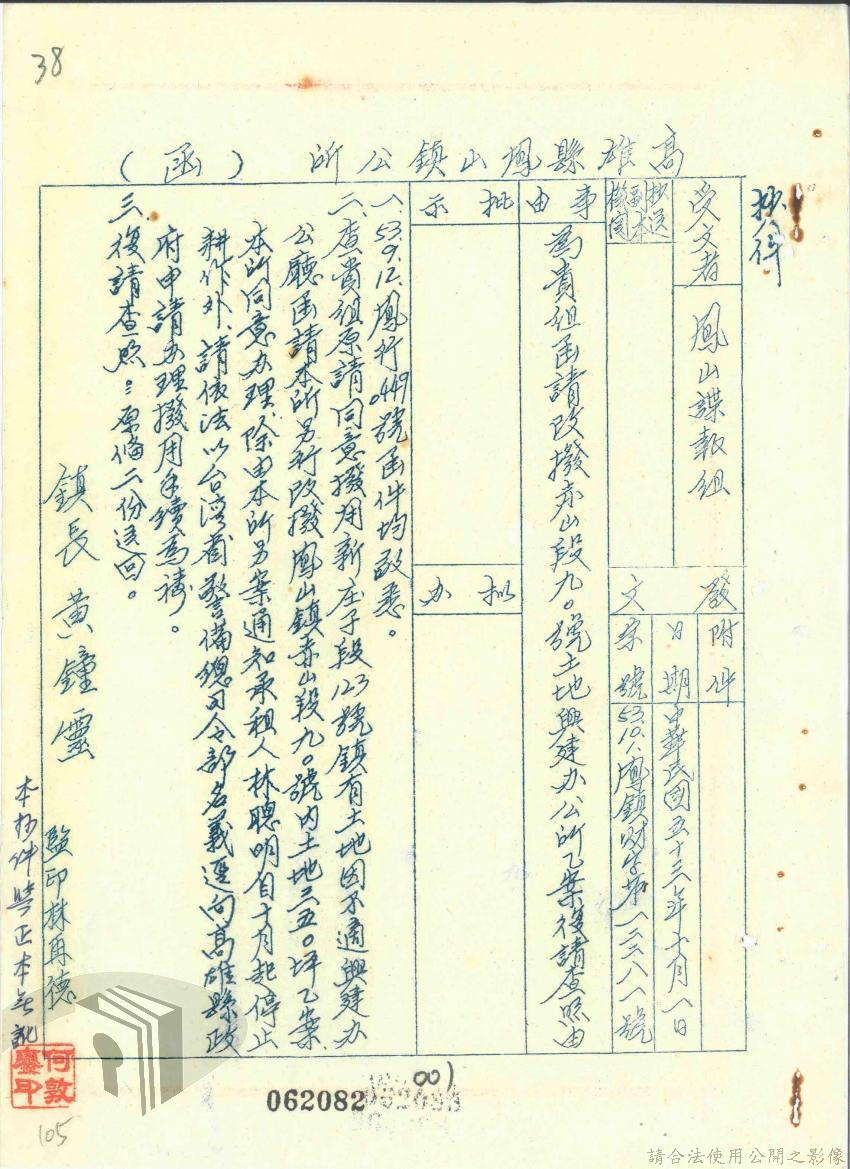 38
抄件
高雄縣鳳山鎮公所 (函)
受文者
鳳山諜報組
抄送副本機關
發文
附件
日期
中華民國五十三年十月八日
字號
53.10.1.鳳鎮財字第一二三八一號
事由
為貴組函請改撥赤山段九0號土地興建办公所乙案復請查照由
批示
拟办
一、53.9.12.鳳行0449號函件均敬悉。
二、查貴組原請同意撥用新庄子段123號鎮有土地因不適興建办
公廳函請本所另行改撥鳳山鎮赤山段九0號內土地三五0坪乙案.
本所同意办理.除由本所另案通知承租人林聰明自十月起停止
耕作外、請依法以台湾省警備總司令部名義逕向高雄縣政
府申請办理撥用手續為禱。
三、復請查照：原俻二份送回。
鎮長 黃鐘靈
監印林再德
本抄件與正本無訛
何敦
062082
001
105
請合法使用公開之影像